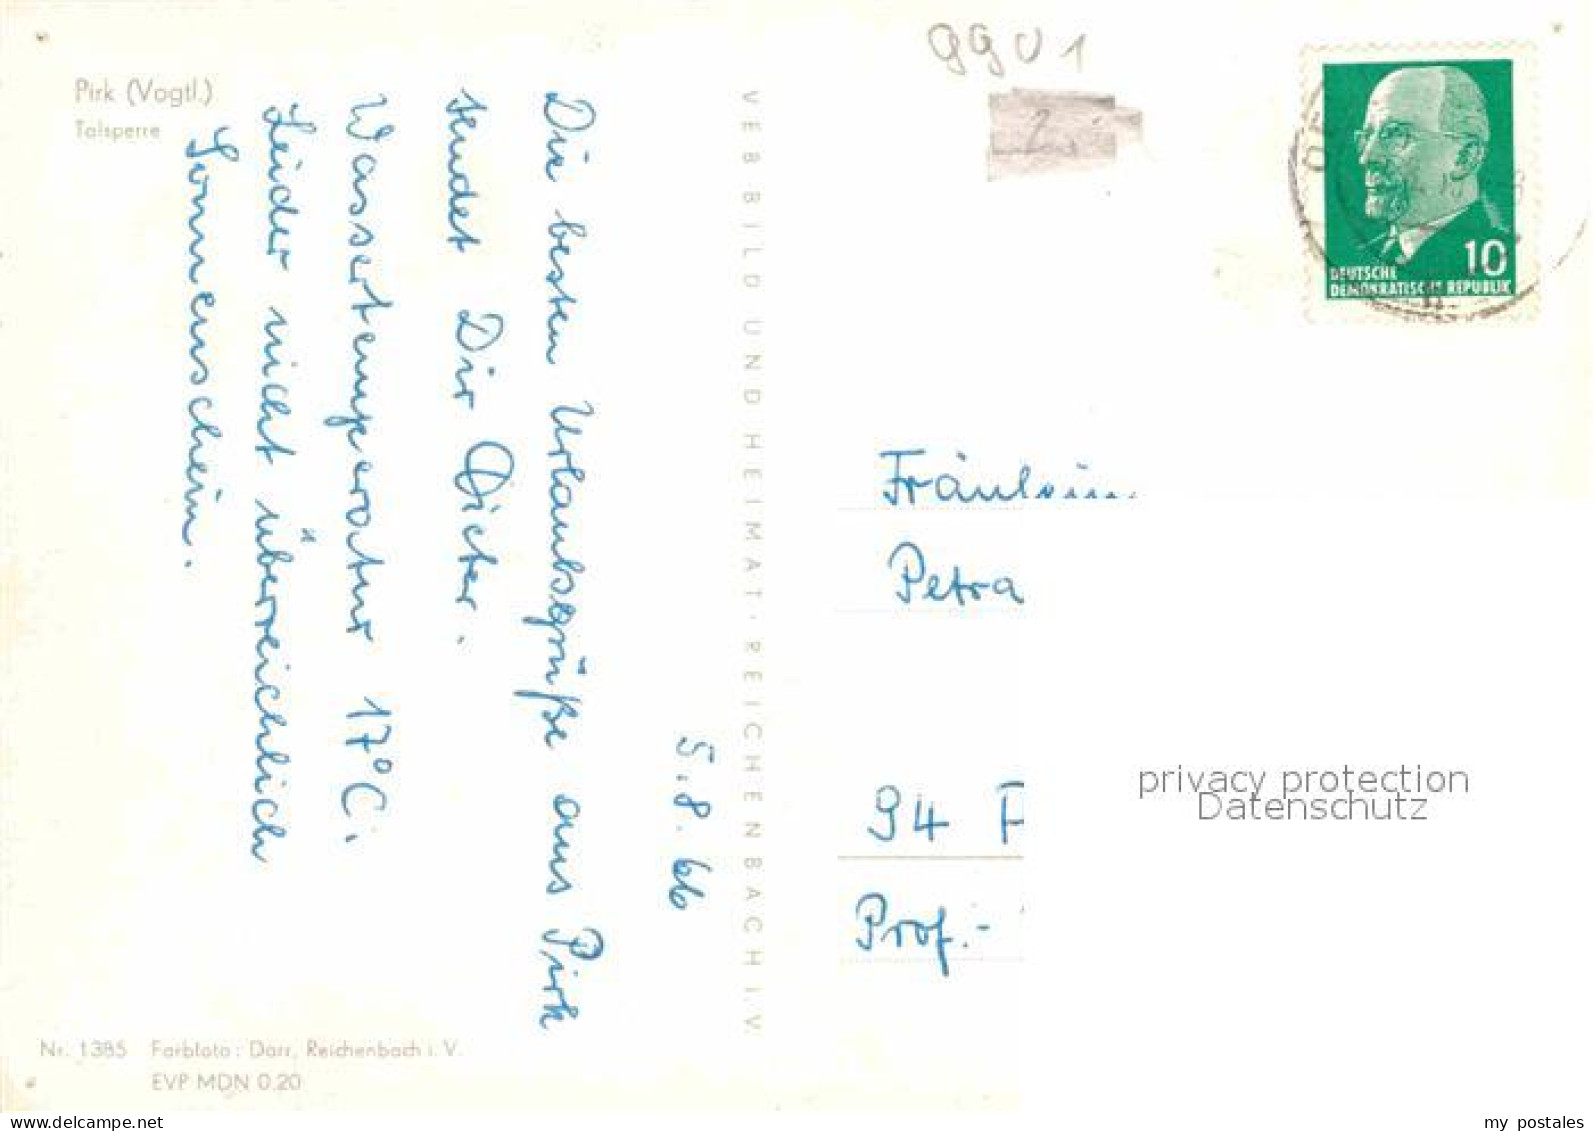 Pirk (Vogtl.)
Talsperre
5.8.66
Die besten Urlaubsgrüße aus Pirk
sendet Dir Dieter.
Wassertemperatur 17°C.
Leider nicht überreichlich
Sonnenschein.
Nr. 1385 Farbfoto: Darr, Reichenbach i. V.
EVP MDN 0.20
VEB BILD UND HEIMAT · REICHENBACH I. V.
9901
10
DEUTSCHE
DEMOKRATISCHE REPUBLIK
Fräulein
Petra
94 F
Prof.-
privacy protection
Datenschutz
my postales